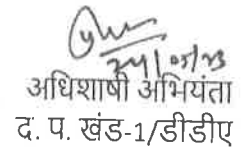 24/05/23
अधिशाषी अभियंता
द. प. खंड-1/डीडीए